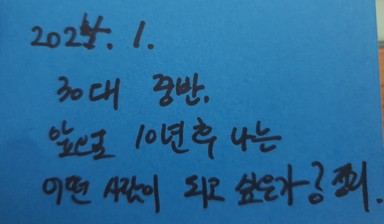 2024. 1.
30대 중반.
앞으로 10년후 나는
어떤 사람이 되고 싶은가? 정리.